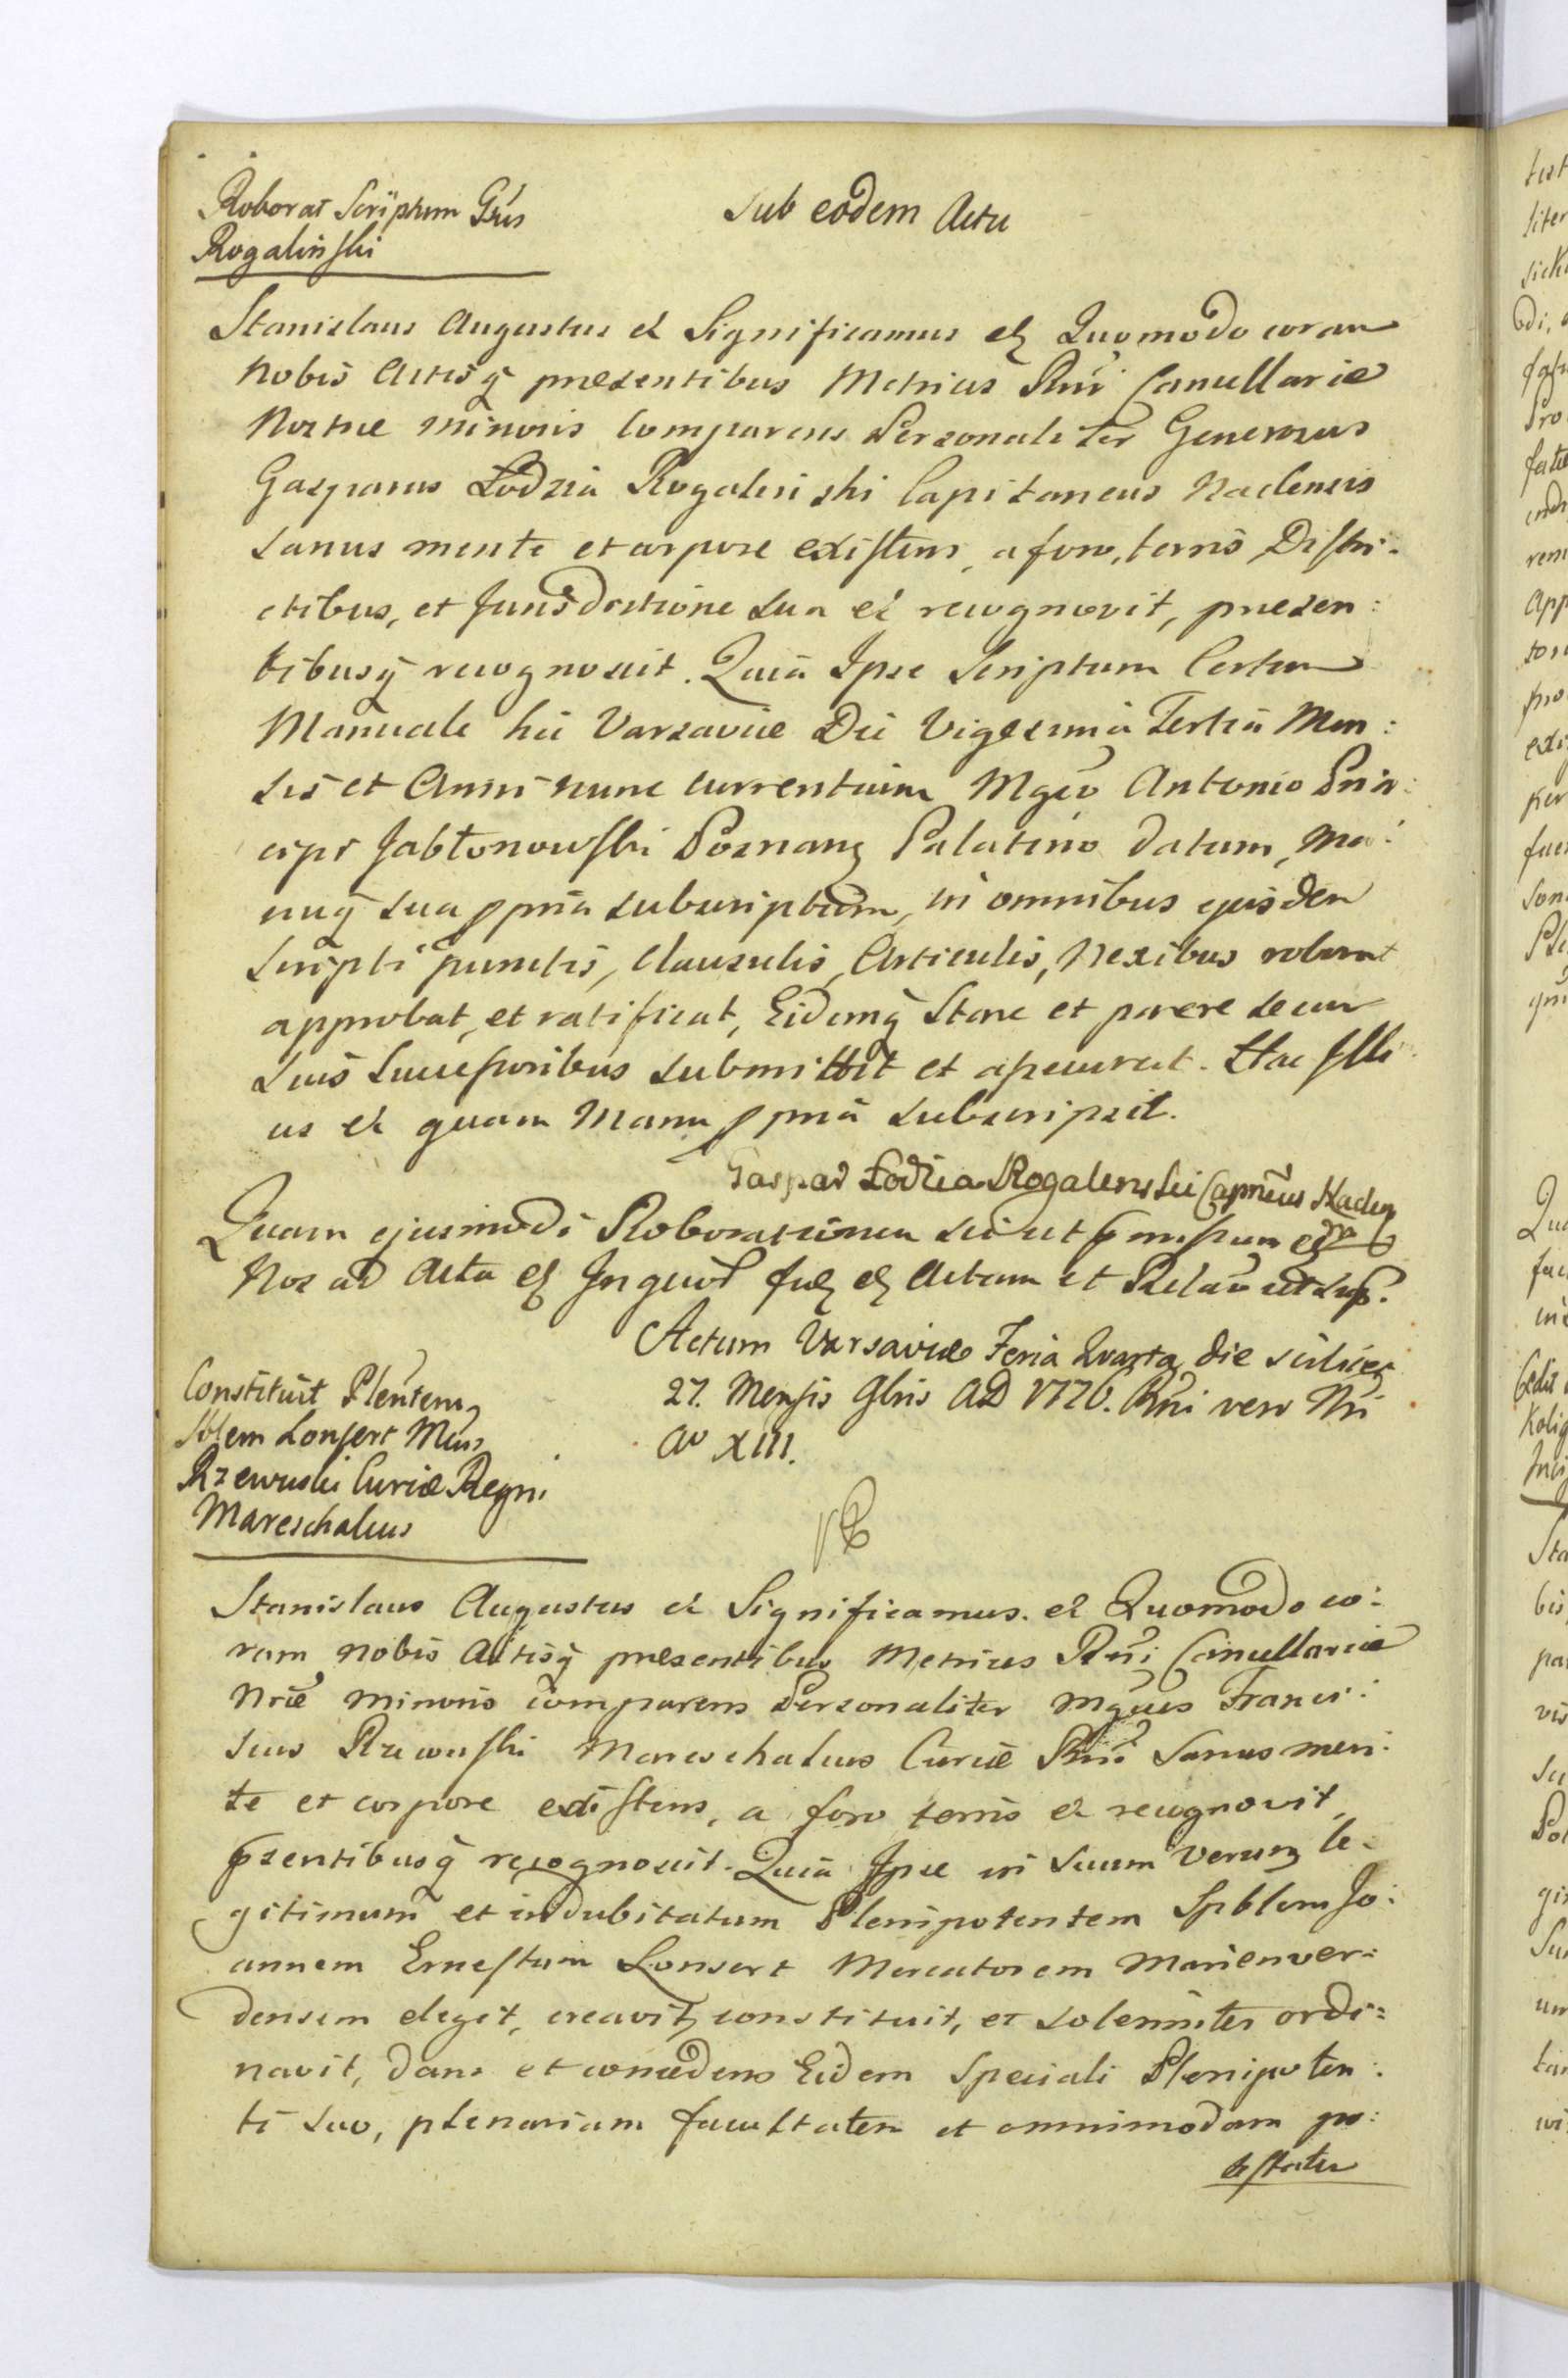 Roborat Scriptum Grus
Rogalinski
Sub eodem Actu
Stanislaus Augustus et Significamus et Quomodo coram
Nobis Actisq presentibus Metrices Rni Cancellariæ
Nostræ minoris Comparens Personaliter Generosus
Gasparus Łodzia Rogalinski Capitaneus Naclensis
Sanus mente et corpore existens, a foro, terris Distri:
ctibus, et Jurisdictione sua et recognovit, præsen:
tibusq recognoscit. Quia Ipse Scriptum Certum
Manuale hic Varsaviæ Die Vigesima Tertia Men:
sis et Anni nunc currentium Mgco Antonio Prin:
cipi Jabłonowski Posnang Palatino datum, Ma:
nuq sua ppria subscriptum, in omnibus ejusdem
Scripti punctis, Clausulis, Articulis, Nexibus roborat
approbat, et ratificat, Eidemq Stare et parere se cum
Suis Successoribus submittit et assecurat. Hac Illi
us et quam Manu ppria subscripsit.
Gaspar Łodzia Rogalenski Capneus Naclen
Quam ejusmodi Roborationem sicut pmissum
Nos ad Acta et Ingres et Actum et Relav ut sup.
Actum Varsaviæ Feria Quarta die scilicet
27. Mensis 9bris AD 1776. Rni vero Nri
Ao XIII.
Constituit Plentem
Sblem Lonsert Mcus
Rzewuski Curiæ Regni
Mareschalcus
Stanislaus Augustus et Significamus. et Quomodo co:
ram nobis Actisq presentibus Metrices Rni Cancellariæ
Nræ minoris comparens Personaliter Mgcus Francis:
scus Rzewuski Mareschalcus Curiæ Rni Sanus men:
te et corpore existens, a foro terris et recognovit,
pzentibusq recognoscit. Quia Ipse in Suum Verum le:
gitimum et indubitatum Plenipotentem Spblem Jo:
annem Ernestum Lonsert Mercatorem Marienver:
densem elegit, creavit, constituit, et solemniter ordi:
navit, dans et concedens Eidem Speciali Plenipoten:
ti suo, plenariam facultatem et omnimodam po:
testatem